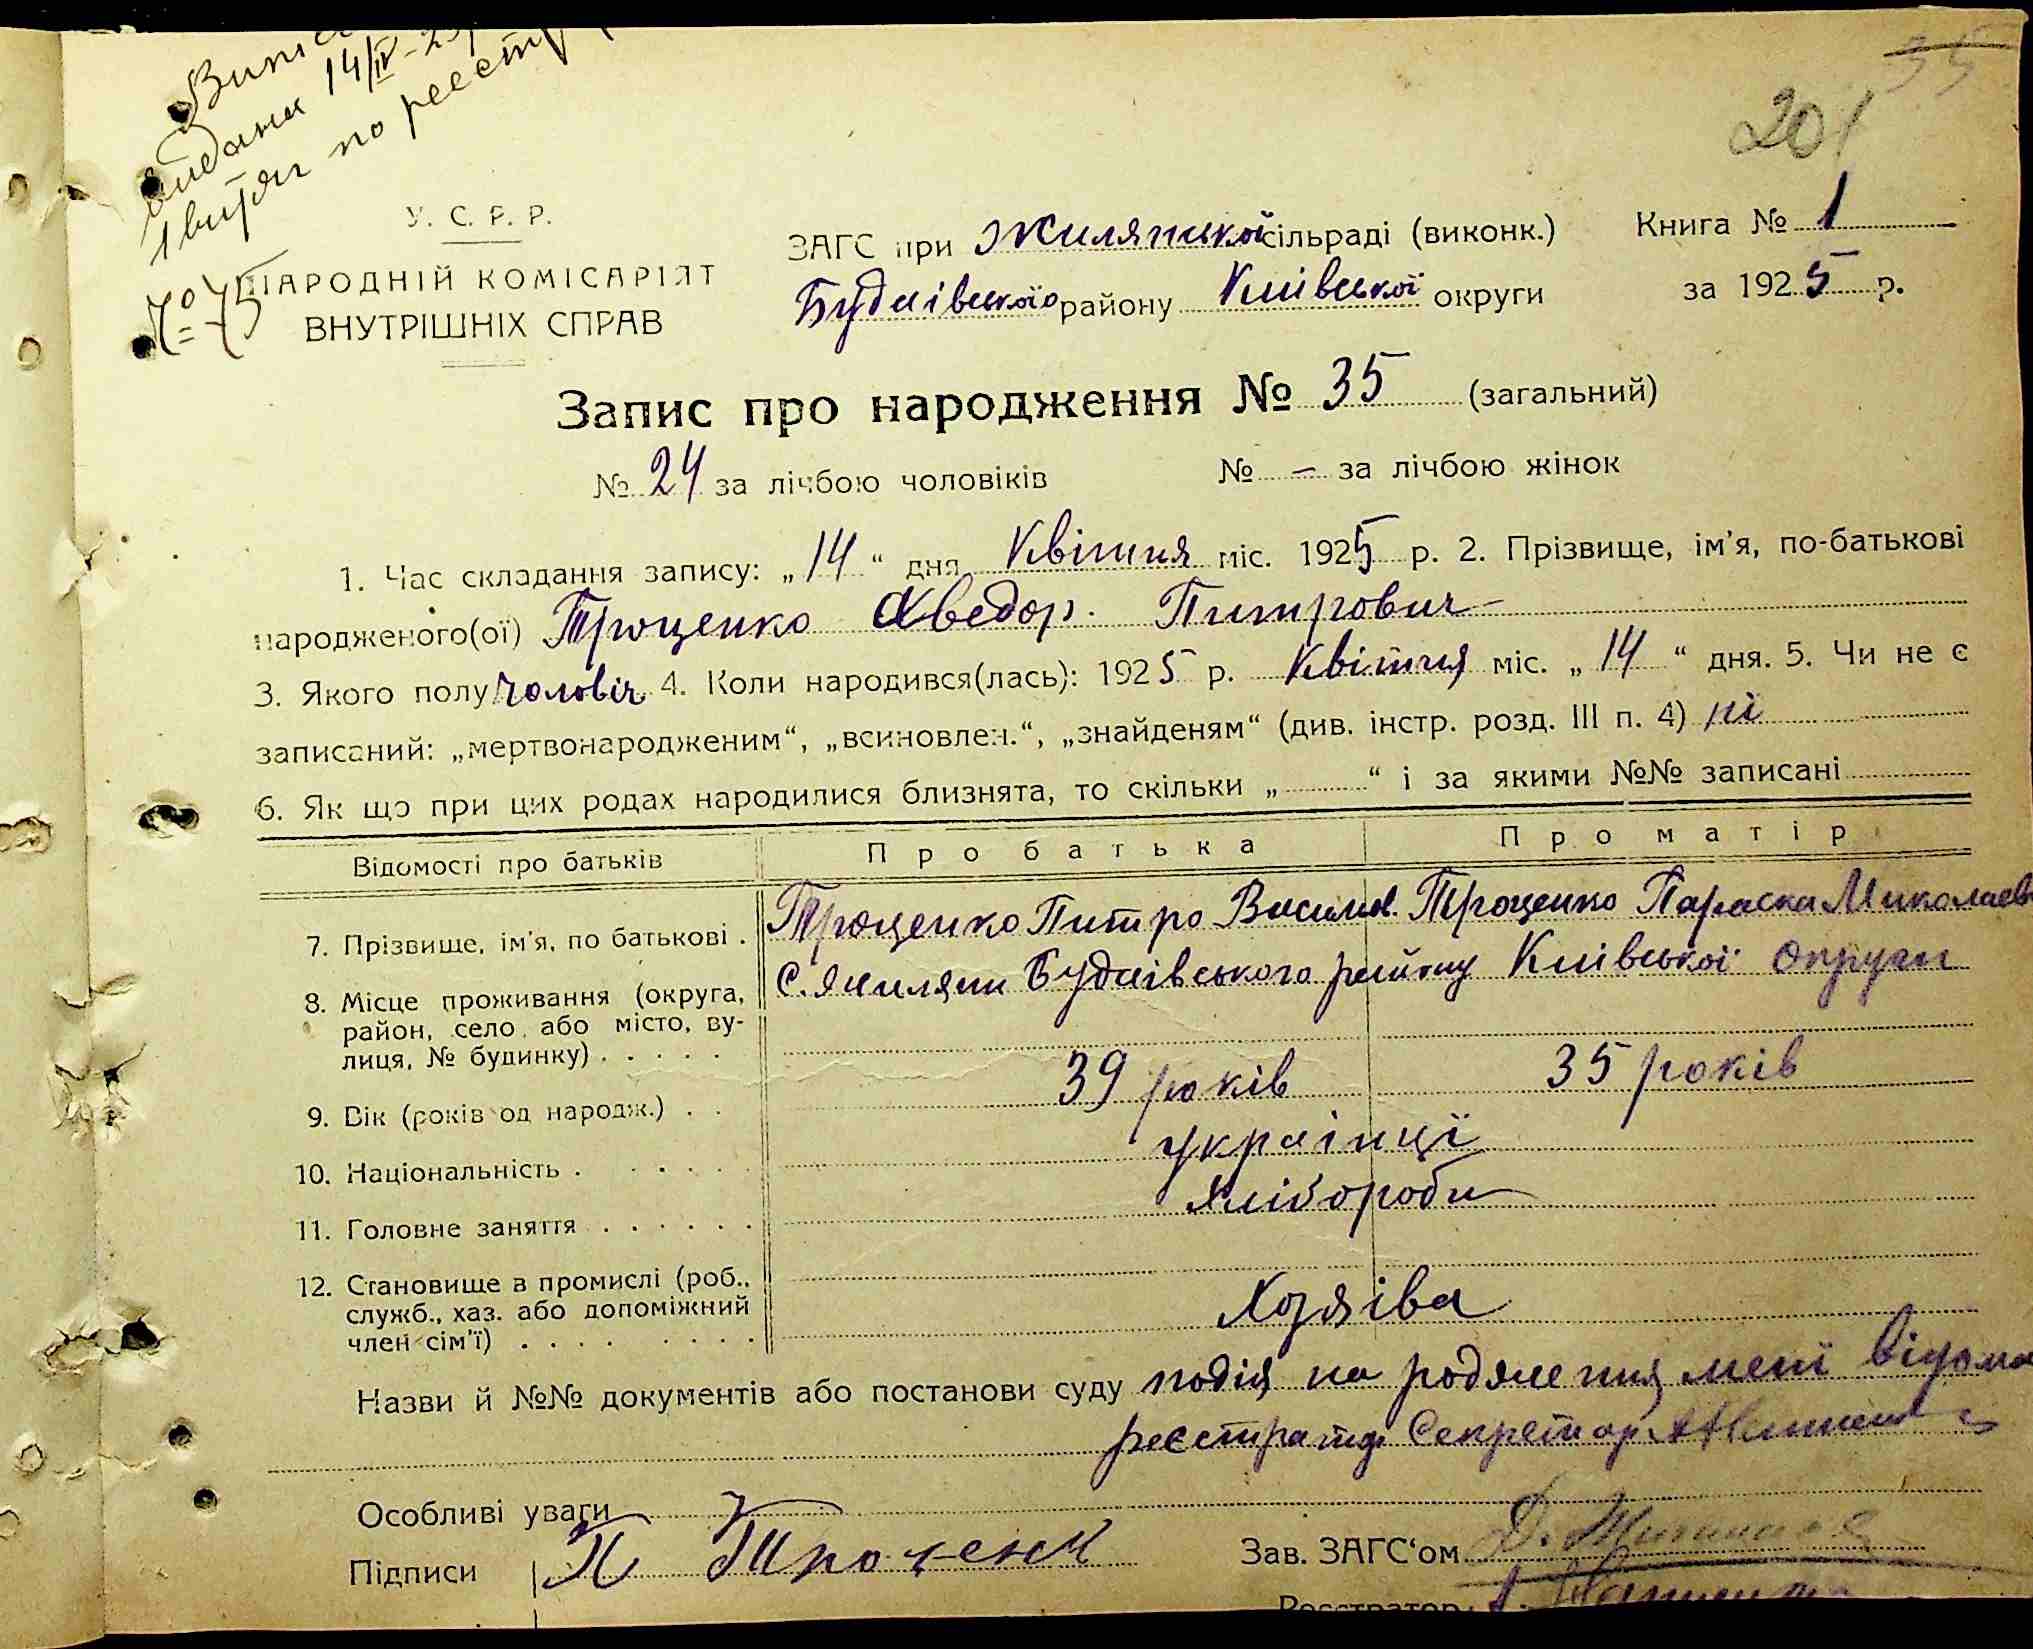 35
201
видана 14/IV-25
1 витяг по реєстр
№ 75
У. С. Р. Р.
НАРОДНІЙ КОМІСАРІЯТ
ВНУТРІШНІХ СПРАВ
ЗАГС при Жилянській сільраді (виконк.)
Будаівського району Київської округи
Книга № 1
за 1925 р.
Запис про народження № 35 (загальний)
№ 24 за лічбою чоловіків № — за лічбою жінок
1. Час складання запису: „14“ дня Квітня міс. 1925 р. 2. Прізвище, ім'я, по-батькові
народженого(ої) Троценко Хведор Питрович
3. Якого полу чоловіч 4. Коли народився(лась): 1925 р. Квітня міс. „14“ дня. 5. Чи не є
записаний: „мертвонародженим“, „всиновлен.“, „знайденям“ (див. інстр. розд. III п. 4) ні
6. Як що при цих родах народилися близнята, то скільки „ “ і за якими №№ записані
Відомості про батьків Про батька Про матір
7. Прізвище, ім'я, по батькові . Троценко Питро Васильов. Троценко Параска Миколаєв
8. Місце проживання (округа, район, село або місто, ву- лиця, № будинку) . . . . . С. Жиляни Будаівського району Київської округи
9. Вік (років од народж.) . . 39 років 35 років
10. Національність . . . . . украінці
11. Головне заняття . . . . . . Хлібороби
12. Становище в промислі (роб., служб., хаз. або допоміжний член сім'ї) . . . . . . . . Хозяіва
Назви й №№ документів або постанови суду подія на родженния мені відома
реєстратор Секретар
Особливі уваги
Підписи П Троценко
Зав. ЗАГС'ом Д.
Реєстратор: А.